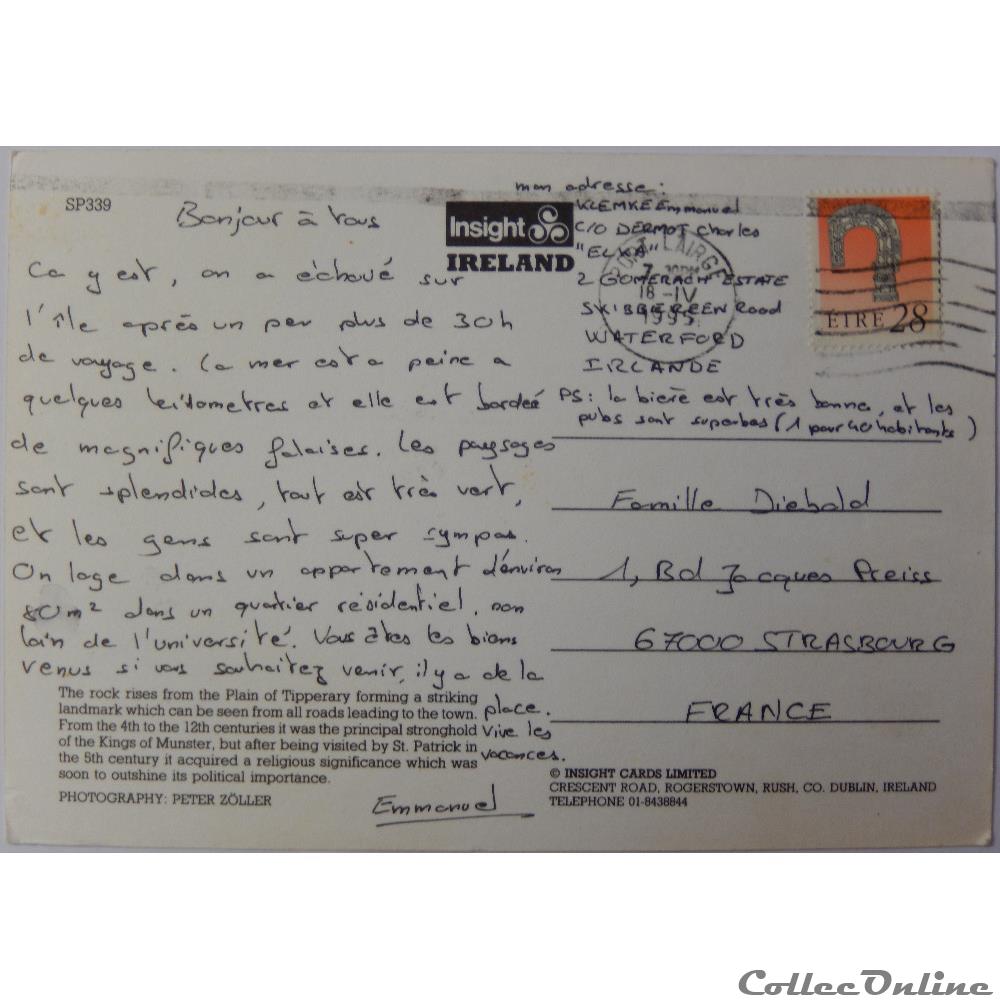 SP339
Bonjour à vous
Ca y est, on a échoué sur
l'île après un peu plus de 30h
de voyage. La mer est a peine a
quelques kilometres et elle est bordeé
de magnifiques falaises. Les paysages
sont splendides, tout est très vert,
et les gens sont super sympas.
On loge dans un appartement d'environ
80m² dans un quartier résidentiel, non
loin de l'université. Vous êtes les biens
venus si vous souhaitez venir, il y a de la
place.
Vive les
vacances.
Emmanuel
The rock rises from the Plain of Tipperary forming a striking
landmark which can be seen from all roads leading to the town.
From the 4th to the 12th centuries it was the principal stronghold
of the Kings of Munster, but after being visited by St. Patrick in
the 5th century it acquired a religious significance which was
soon to outshine its political importance.
PHOTOGRAPHY: PETER ZÖLLER
Insight
IRELAND
mon adresse:
KLEMKE Emmanuel
C/O DERMOT Charles
"ELKA"
2 GOMERACH ESTATE
SKIBBEREEN Road
WATERFORD
IRLANDE
PS: la bierè est très bonne, et les
pubs sont superbes (1 pour 40 habitants)
PORT LAIRGE
18-IV
1995
ÉIRE 28
Famille Diebold
1, Bd Jacques Preiss
67000 STRASBOURG
FRANCE
© INSIGHT CARDS LIMITED
CRESCENT ROAD, ROGERSTOWN, RUSH, CO. DUBLIN, IRELAND
TELEPHONE 01-8438844
CollecOnline